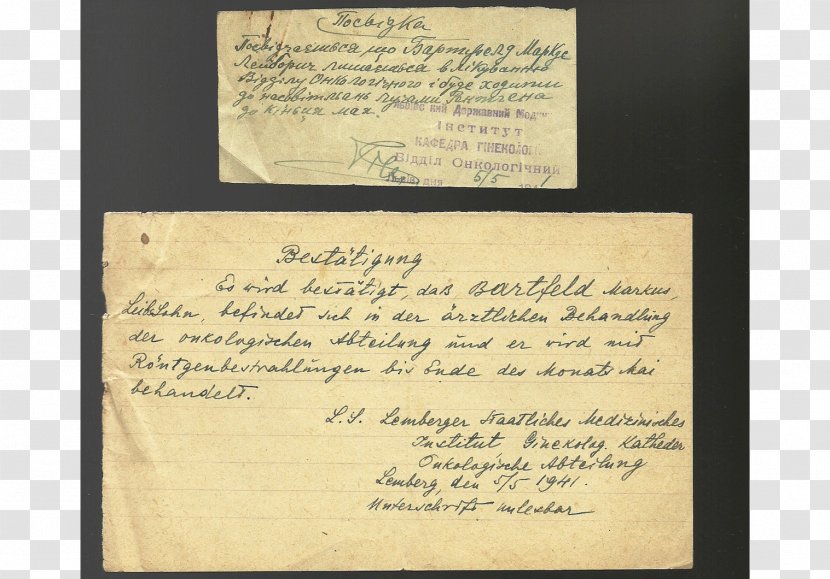 Посвідка
Посвідчається що Бартфельд Маркус
Лейбович лишається в лікуванню
Відділу Онкологічного і буде ходити
до насвітлань лучами Рентгена
до кінця мая.
Державний Мед
Інститут
КАФЕДРА ГІНЕКОЛОГІ
Відділ Онкологічний
дня 5/5 1941
Bestätigung
Es wird bestätigt, daß Bartfeld Markus,
Leib Sohn, befindet sich in der ärztlichen Behandlung
der onkologischen Abteilung und er wird mit
Röntgenbestrahlungen bis Ende des Monats Mai
behandelt.
L.S. Lemberger Staatliches Medizinisches
Institut Ginekolog. Katheder
Onkologische Abteilung
Lemberg, den 5/5 1941.
Unterschrift unlesbar